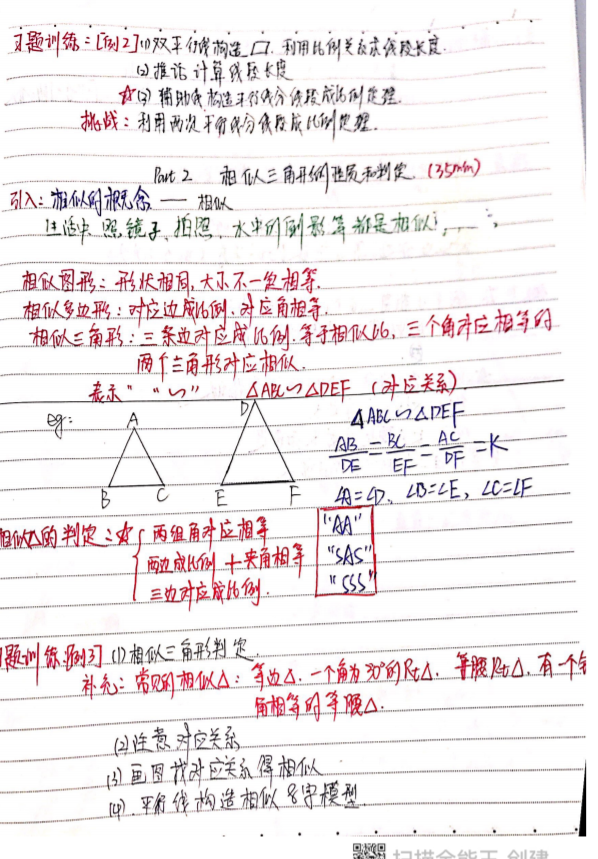 习题训练：[例2] (1) 双平行线构造▱. 利用比例关系求线段长度.
(2) 推论 计算线段长度
☆(3) 辅助线构造平行线分线段成比例定理.
挑战：利用两次平行线分线段成比例定理.
Part 2 相似三角形的性质和判定. (35min)
引入：相似的概念 —— 相似
生活中 照镜子、拍照、水中的倒影等都是相似; ......;
相似图形：形状相同, 大小不一定相等.
相似多边形：对应边成比例. 对应角相等.
相似三角形：三条边对应成比例. 等于相似比, 三个角对应相等的
两个三角形对应相似.
表示 " ∽ " △ABC∽△DEF (对应关系).
eg:
A
B C
D
E F
△ABC∽△DEF
AB/DE = BC/EF = AC/DF = K
∠A=∠D、∠B=∠E、∠C=∠F
相似△的判定：☆ { 两组角对应相等 "AA"
两边成比例 + 夹角相等 "SAS"
三边对应成比例. "SSS"
习题训练 [例3] (1) 相似三角形判定.
补充：常见的相似△：等边△. 一个角为30°的Rt△. 等腰Rt△. 有一个
角相等的等腰△.
(2) 注意对应关系
(3) 画图找对应关系得相似
(4). 平行线构造相似 8字模型.
扫描全能王 创建